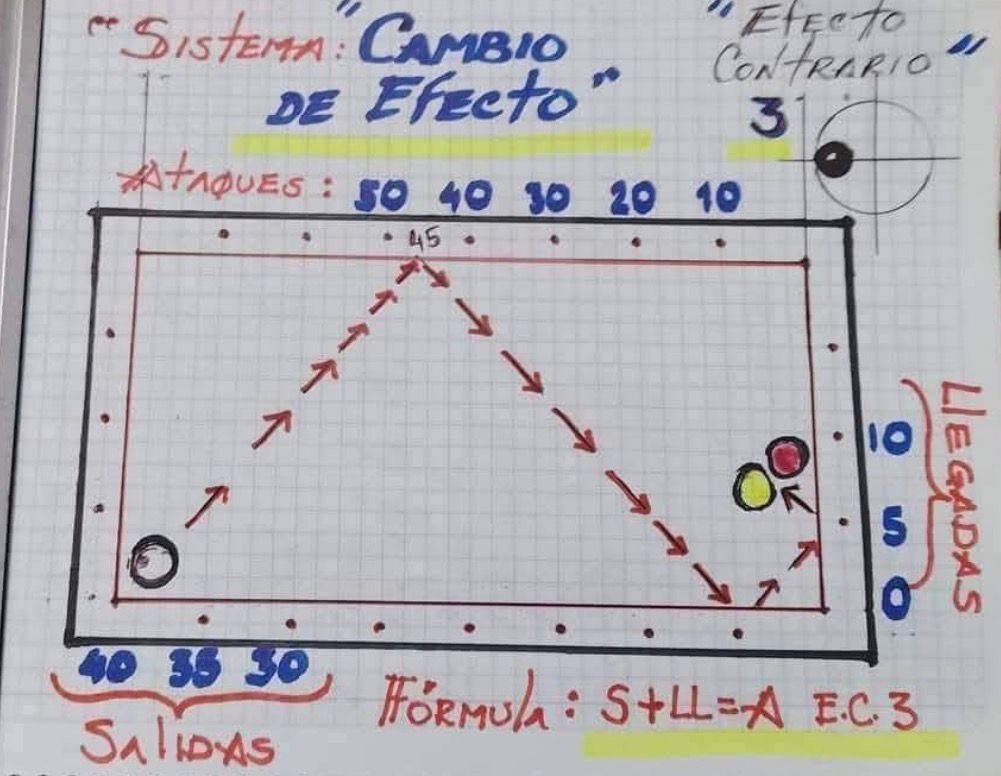 "Sistema: "Cambio
de Efecto"
"Efecto
Contrario"
3
Ataques: 50 40 30 20 10
45
10
5
0
Llegadas
40 35 30
Salidas
Fórmula: S+LL=A E.C.3